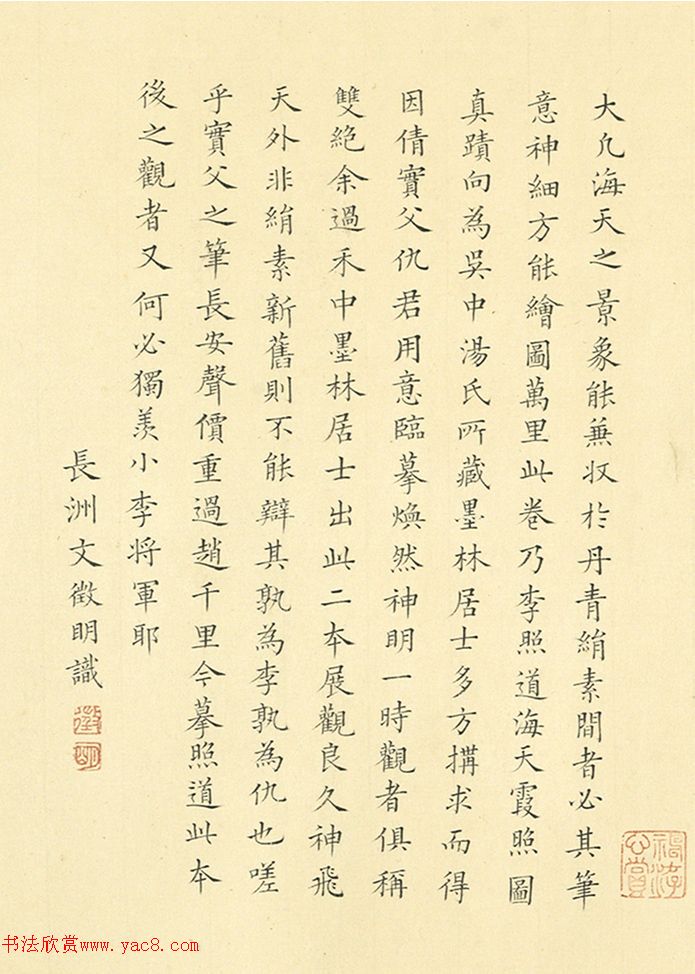 大凡海天之景象能兼収於丹青絹素間者必其筆
意神細方能繪圖萬里此卷乃李照道海天霞照圖
真蹟向為吳中湯氏所藏墨林居士多方搆求而得
因倩實父仇君用意臨摹煥然神明一時觀者俱稱
雙絕余過禾中墨林居士出此二本展觀良久神飛
天外非絹素新舊則不能辯其孰為李孰為仇也嗟
乎實父之筆長安聲價重過趙千里今摹照道此本
後之觀者又何必獨羨小李将軍耶
長洲文徵明識
徵
明
书法欣赏www.yac8.com